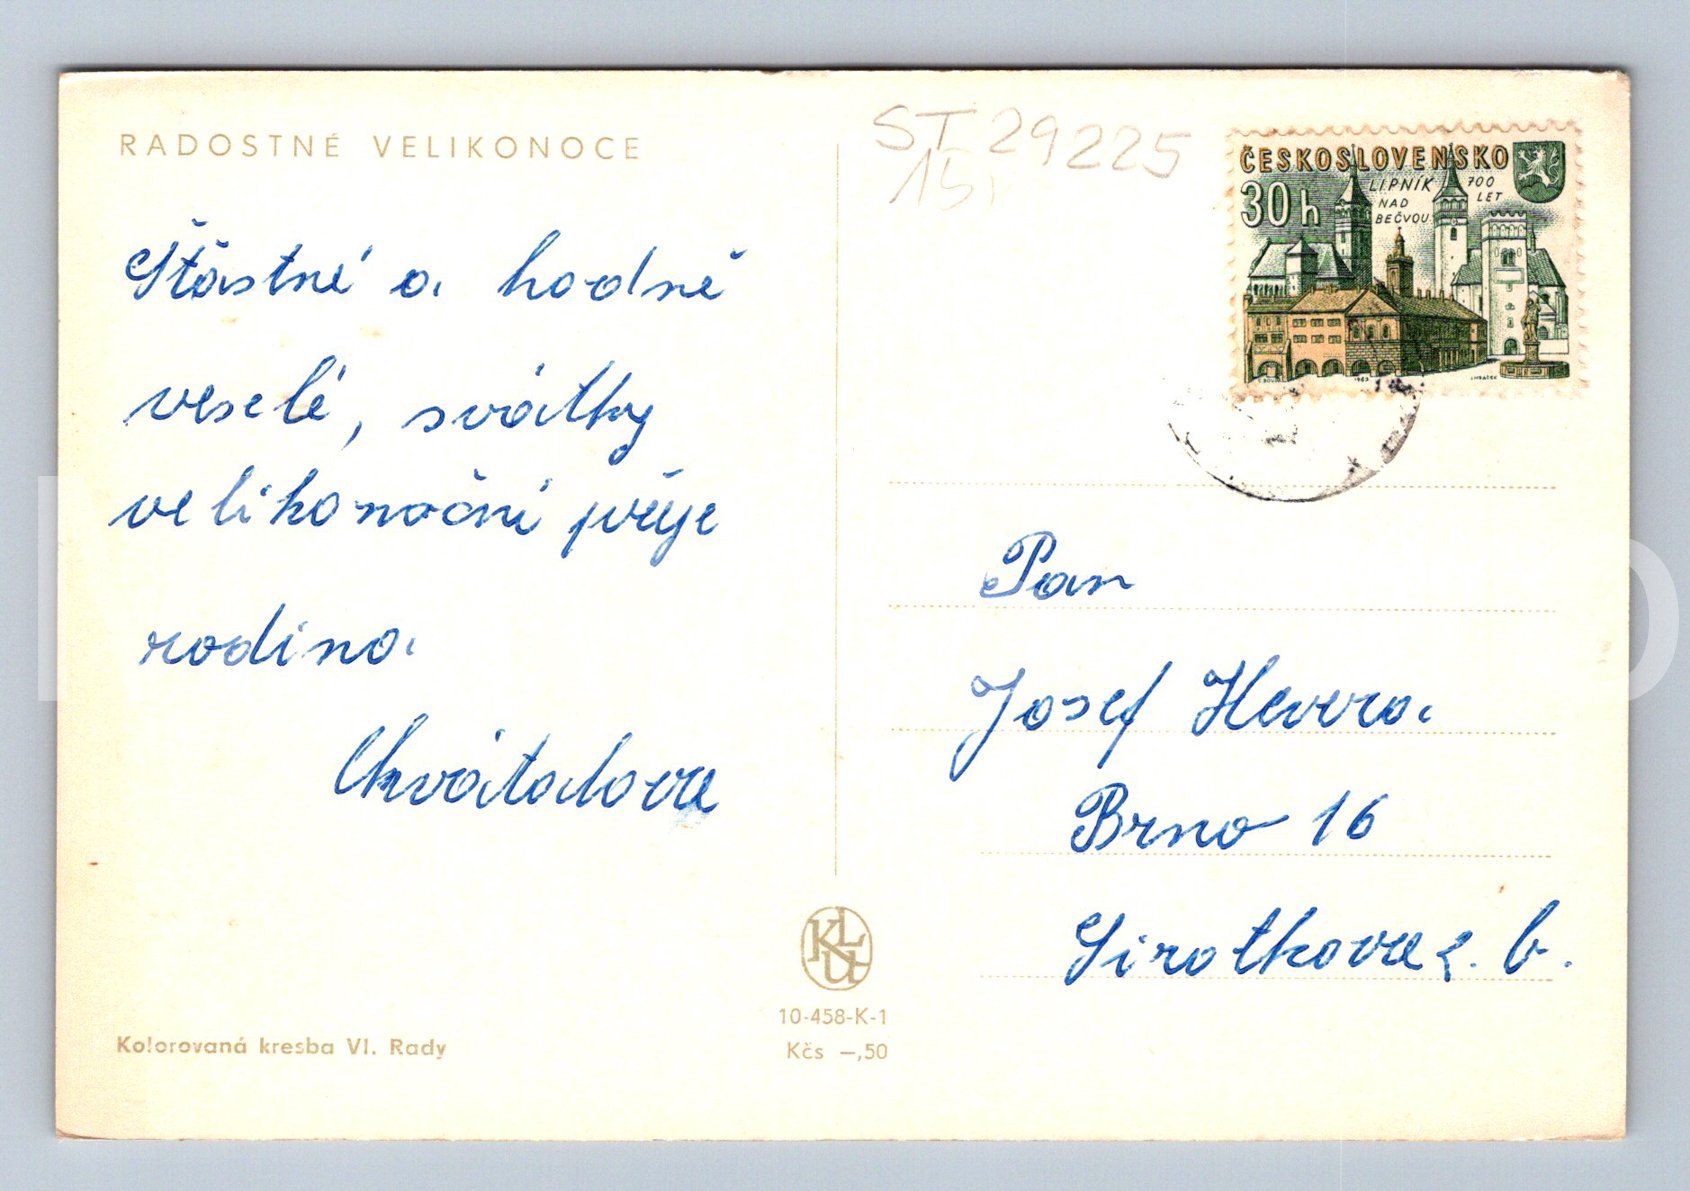 RADOSTNÉ VELIKONOCE
Šťastné a hodně
veselé, svátky
velikonoční přeje
rodina
Chvátalova
Kolorovaná kresba Vl. Rady
10-458-K-1
Kčs —,50
ST 29225
15,
ČESKOSLOVENSKO
30h
LIPNÍK
NAD
BEČVOU
700
LET
Pan
Josef Hevera
Brno 16
Sirotkova č. 6.